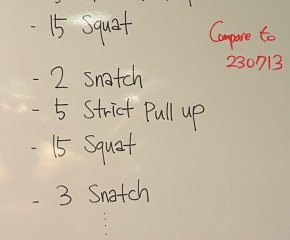 - 15 Squat
Compare to
230713
- 2 Snatch
- 5 Strict Pull up
- 15 Squat
- 3 Snatch